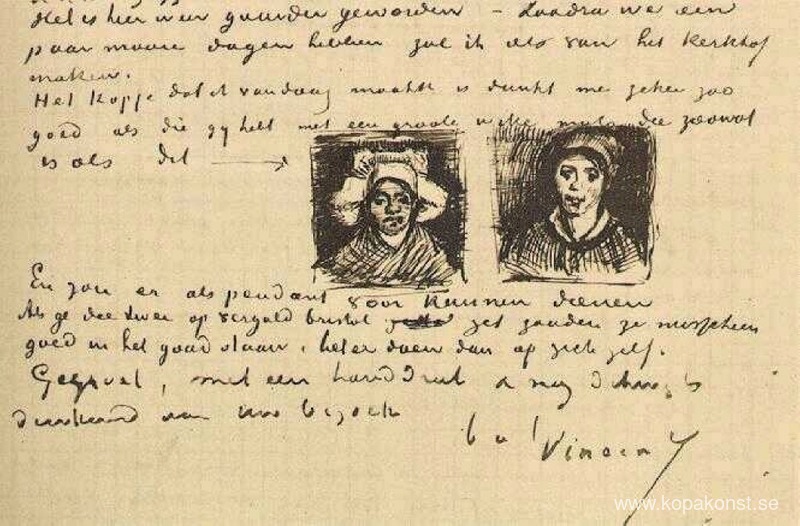 Het is hier weer guurder geworden – Zoodra we een
paar mooie dagen hebben zal ik als van het kerkhof
maken.
Het kopje dat ik vandaag maakte is dunkt me zeker zoo
goed als die gij hebt met een groote witte muts die zoowat
is als dit
En zou er als pendant voor kunnen dienen
Als ge die twee op verguld bristol zet zouden ze misschien
goed in het goud staan, beter doen dan op zich zelf.
Gegroet, met een handdruk & nog
dankend van uw bezoek
t. à t. Vincent
www.kopakonst.se